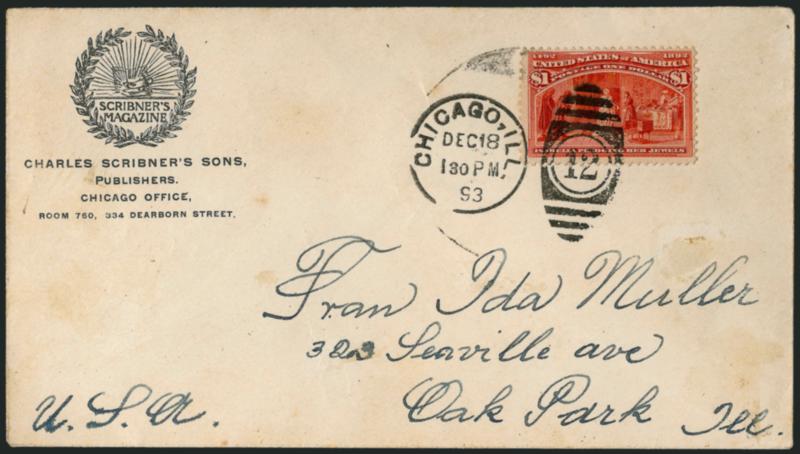 SCRIBNER'S
MAGAZINE
CHARLES SCRIBNER'S SONS,
PUBLISHERS.
CHICAGO OFFICE,
ROOM 760, 334 DEARBORN STREET.
1492 1892
UNITED STATES OF AMERICA
$1 POSTAGE ONE DOLLAR $1
ISABELLA PLEDGING HER JEWELS
CHICAGO, ILL.
DEC 18
1 30 PM
93
12
Fran Ida Muller
323 Senville ave
Oak Park Ill.
U.S.A.